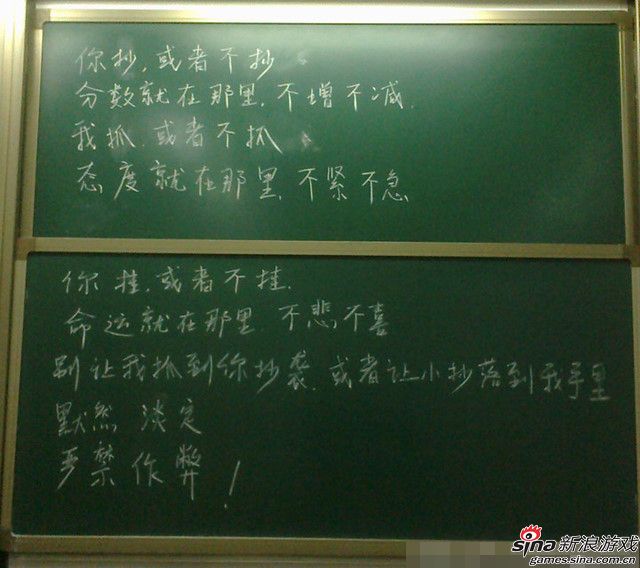 你抄,或者不抄
分数就在那里,不增不减.
我抓.或者不抓
态度就在那里.不紧不急.
你挂.或者不挂.
命运就在那里 不悲不喜
别让我抓到你抄袭.或者让小抄落到我手里
默然 淡定
严禁作弊!
sina新浪游戏
games.sina.com.cn